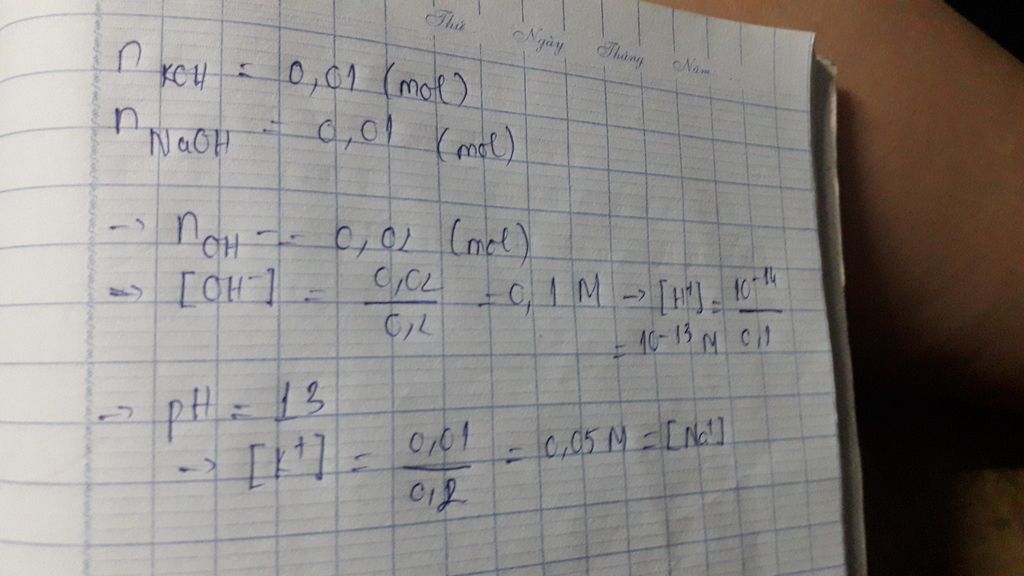 Thứ Ngày Tháng Năm
n KOH = 0,01 (mol)
n NaOH = 0,01 (mol)
→ n OH⁻ = 0,02 (mol)
→ [OH⁻] = 0,02 / 0,2 = 0,1 M → [H⁺] = 10⁻¹⁴ / 0,1
= 10⁻¹³ M
→ pH = 13
→ [K⁺] = 0,01 / 0,2 = 0,05 M = [Na⁺]